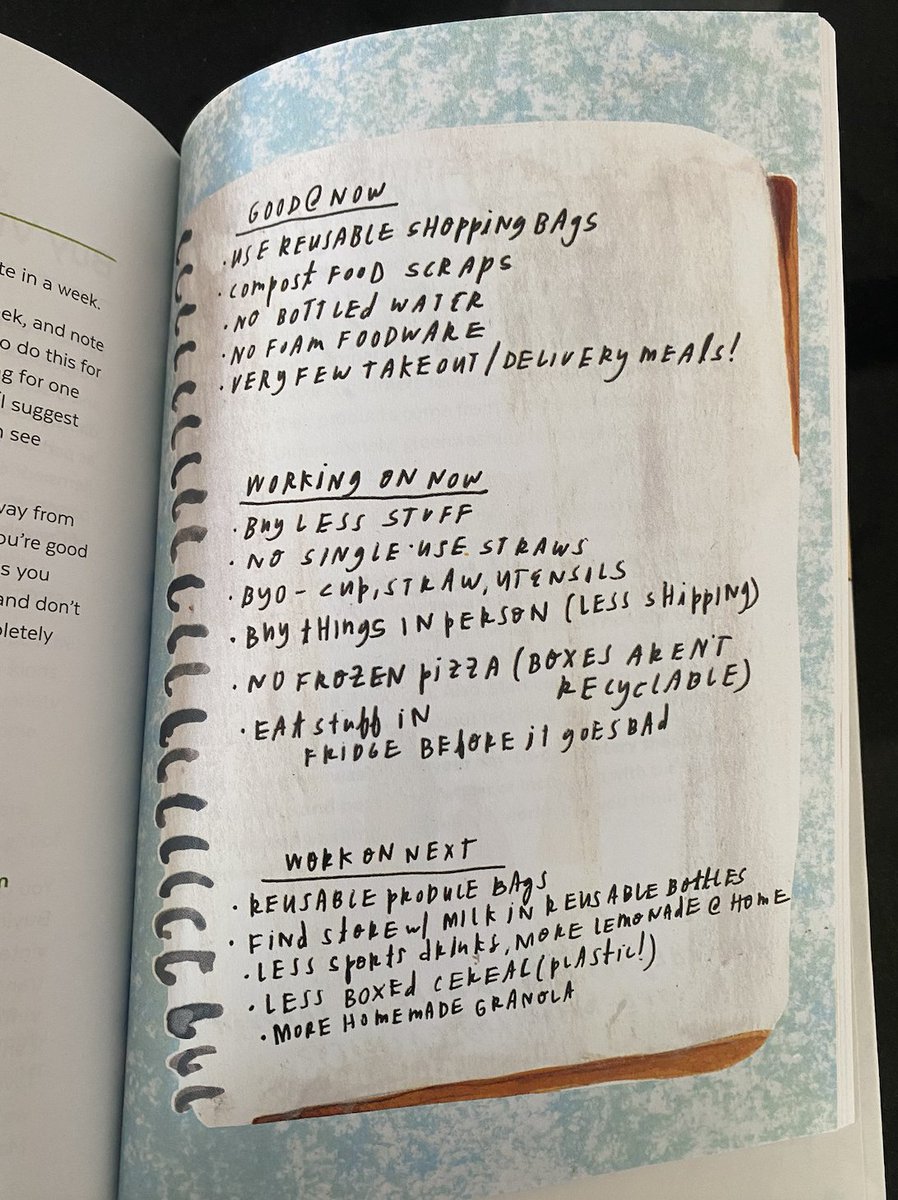 te in a week.
eek, and note
o do this for
g for one
I suggest
n see
way from
ou're good
s you
and don't
pletely
n
GOOD@NOW
• USE REUSABLE SHOPPING BAGS
• COMPOST FOOD SCRAPS
• NO BOTTLED WATER
• NO FOAM FOODWARE
• VERY FEW TAKEOUT/DELIVERY MEALS!
WORKING ON NOW
• BUY LESS STUFF
• NO SINGLE-USE STRAWS
• BYO – CUP, STRAW, UTENSILS
• BUY THINGS IN PERSON (LESS SHIPPING)
• NO FROZEN PIZZA (BOXES AREN'T
RECYCLABLE)
• EAT STUFF IN
FRIDGE BEFORE IT GOES BAD
WORK ON NEXT
• REUSABLE PRODUCE BAGS
• FIND STORE W/ MILK IN REUSABLE BOTTLES
• LESS SPORTS DRINKS, MORE LEMONADE @ HOME
• LESS BOXED CEREAL (PLASTIC!)
• MORE HOMEMADE GRANOLA